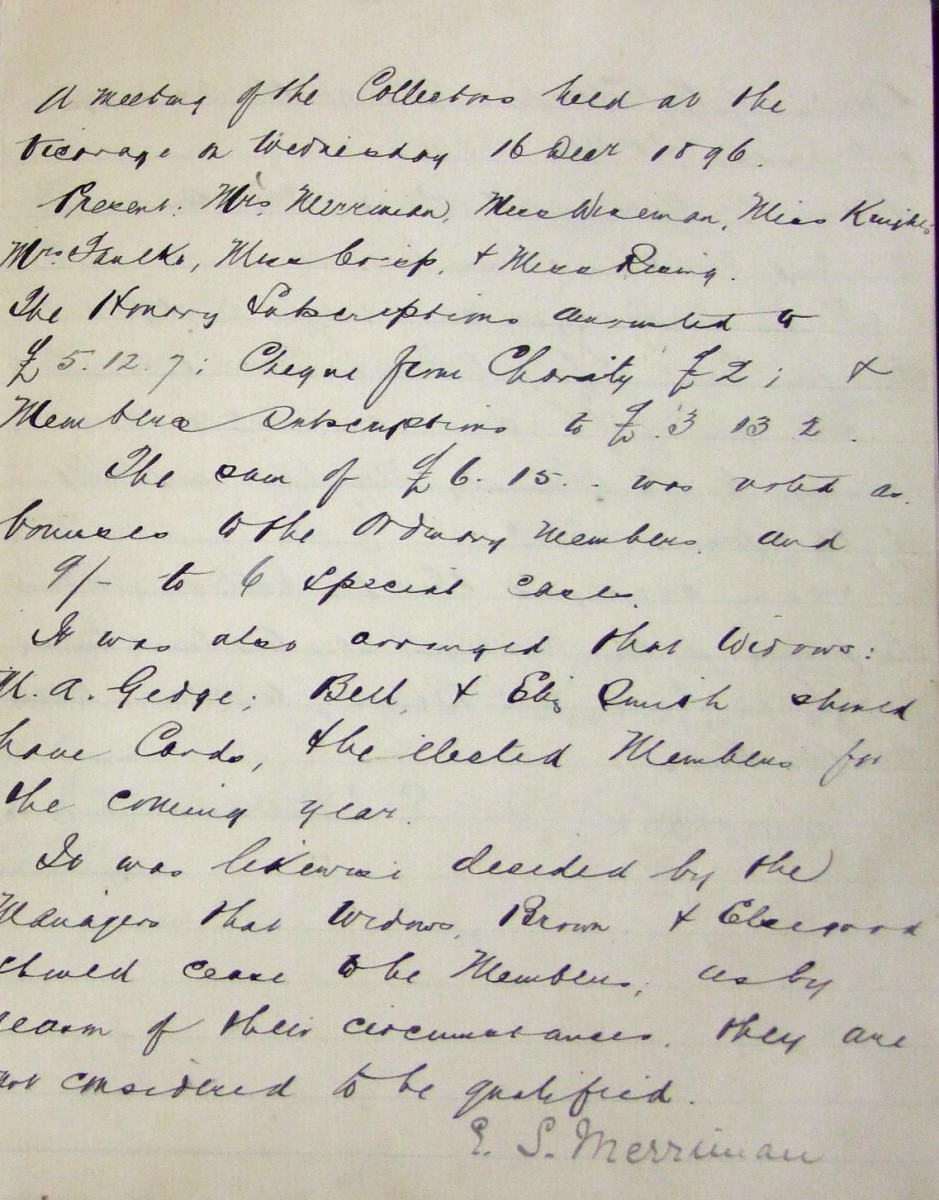 A meeting of the Collectors held at the
Vicarage on Wednesday 16 Decr 1896.
Present: Mrs. Merriman, Miss Wiseman, Miss Knights
Mrs. Faulke, Miss Crisp, + Miss Rising.
The Honory Subscriptions amounted to
£5.12.7; Cheque from Charity £2; +
Members Subscriptions to £.3 13 2.
The sum of £6. 15. - was voted as
bonuses to the Ordinary Members. and
9/- to 6 special cases.
It was also arranged that Widows:
M. A. Gedge; Bell, + Eliz Smith should
have Cards, the elected Members for
the coming year.
It was likewise decided by the
Managers that Widows, Brown +
should cease to be Members; as by
reason of their circumstances, they are
not considered to be qualified.
E. S. Merriman